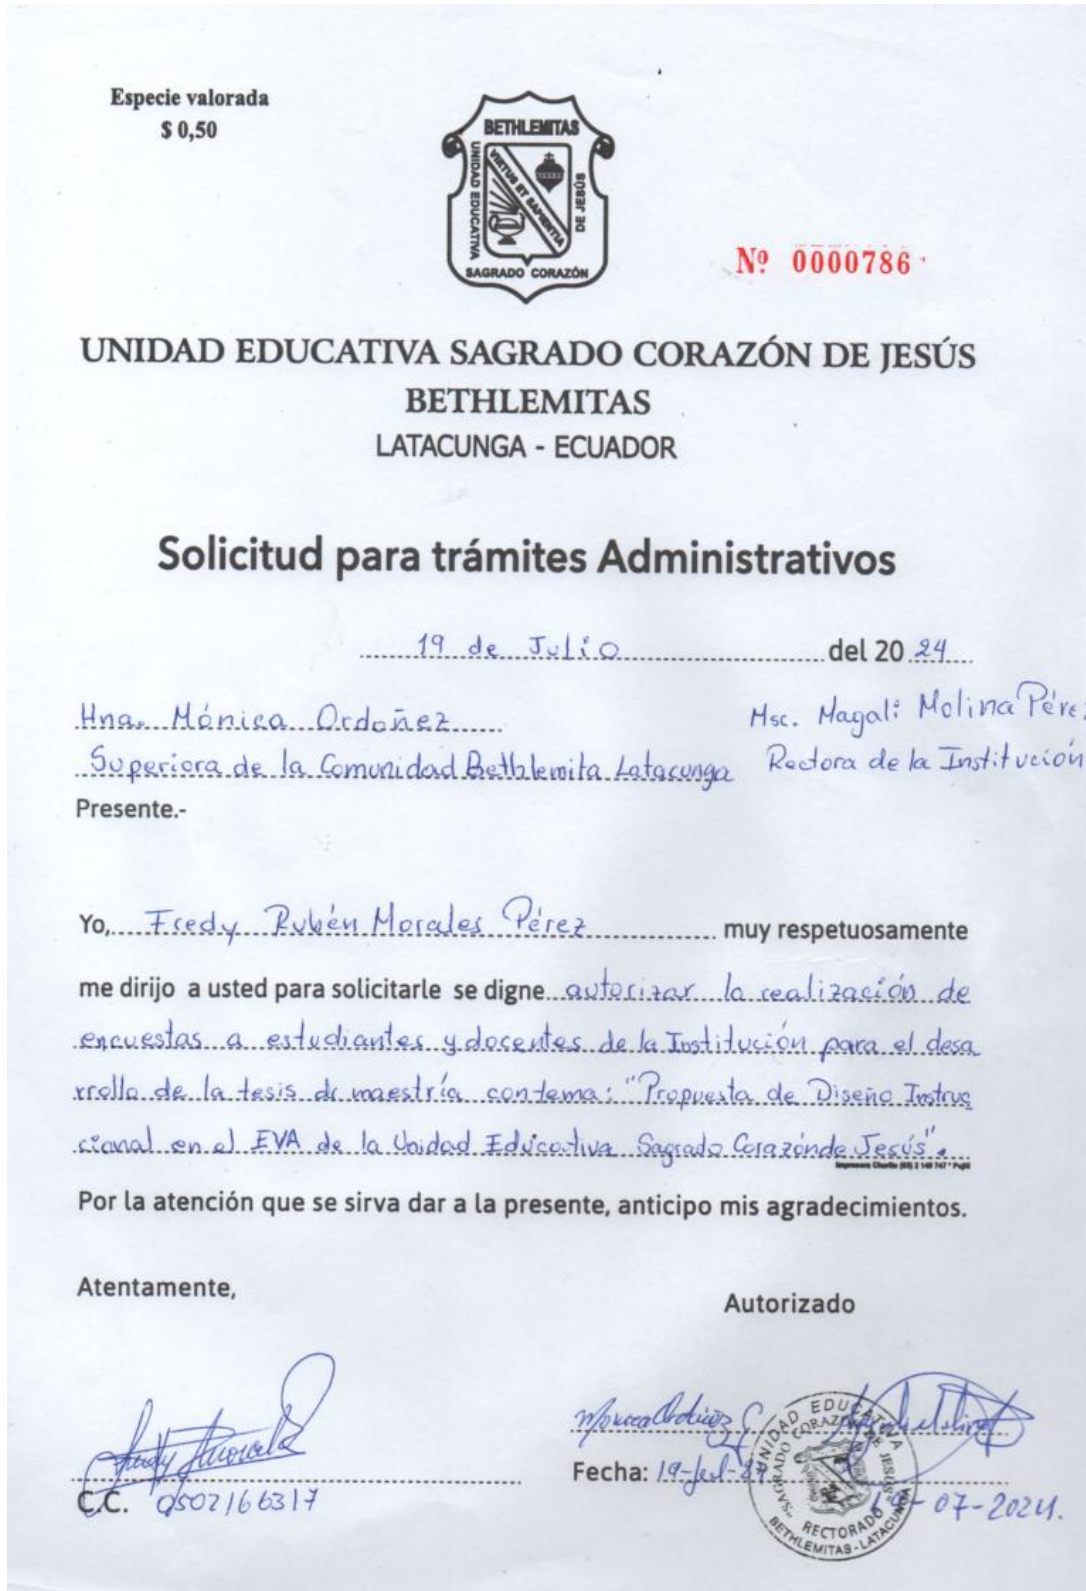 Especie valorada
$ 0,50
BETHLEMITAS
UNIDAD EDUCATIVA
VIRTUS ET SAPIENTIA
DE JESÚS
SAGRADO CORAZÓN
Nº 0000786
UNIDAD EDUCATIVA SAGRADO CORAZÓN DE JESÚS
BETHLEMITAS
LATACUNGA - ECUADOR
Solicitud para trámites Administrativos
19 de Julio del 20 24
Hna. Mónica Ordoñez Msc. Magali Molina Pérez
Superiora de la Comunidad Bethlemita Latacunga Rectora de la Institución
Presente.-
Yo, Fredy Rubén Morales Pérez muy respetuosamente
me dirijo a usted para solicitarle se digne autorizar la realización de
encuestas a estudiantes y docentes de la Institución para el desa
rrollo de la tesis de maestría con tema: "Propuesta de Diseño Instruc
cional en el EVA de la Unidad Educativa Sagrado Corazón de Jesús".
Por la atención que se sirva dar a la presente, anticipo mis agradecimientos.
Atentamente,
Autorizado
C.C. 0502166317
Fecha: 19-jul-24
19-07-2024.
UNIDAD EDUCATIVA
SAGRADO CORAZÓN DE JESÚS
RECTORADO
BETHLEMITAS-LATACUNGA